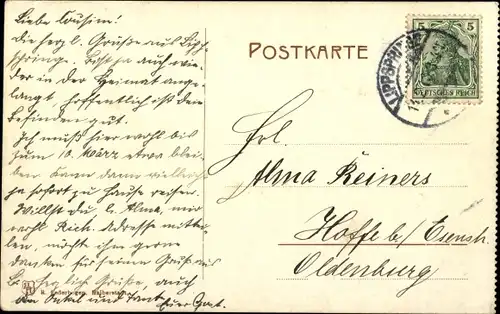 Liebe Cousine!
Die herzl. Grüße aus Lipp-
springe. Bist ja auch wie-
der in der Heimat ange-
langt. Hoffentlich ist dein
Befinden gut.
Ich muß hier wohl bis
zum 10. März etwa blei-
ben. Kann dann vielleicht
ja sofort zu Hause reisen.
Willst du, l. Alma, mir
wohl Rich. Adresse mittei-
len, möchte ihm gerne
danken für seinen Gruß aus
Herzlich Grüße, auch
an Onkel und Tante
Euer
R. Lederbogen, Halberstadt
POSTKARTE
5 5
DEUTSCHES REICH
LIPPSPRINGE
Frl.
Alma Reiners
Hoffe b/ Esensh.
Oldenburg